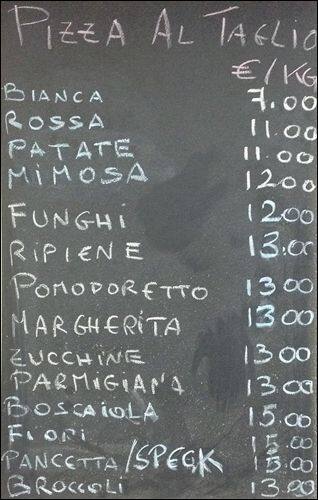 PIZZA AL TAGLIO
€/KG
BIANCA 7.00
ROSSA 11.00
PATATE 11.00
MIMOSA 12.00
FUNGHI 12.00
RIPIENE 13.00
POMODORETTO 13.00
MARGHERITA 13.00
ZUCCHINE 13.00
PARMIGIANA 13.00
BOSCAIOLA 15.00
FIORI 15.00
PANCETTA/SPECK 15.00
BROCCOLI 13.00